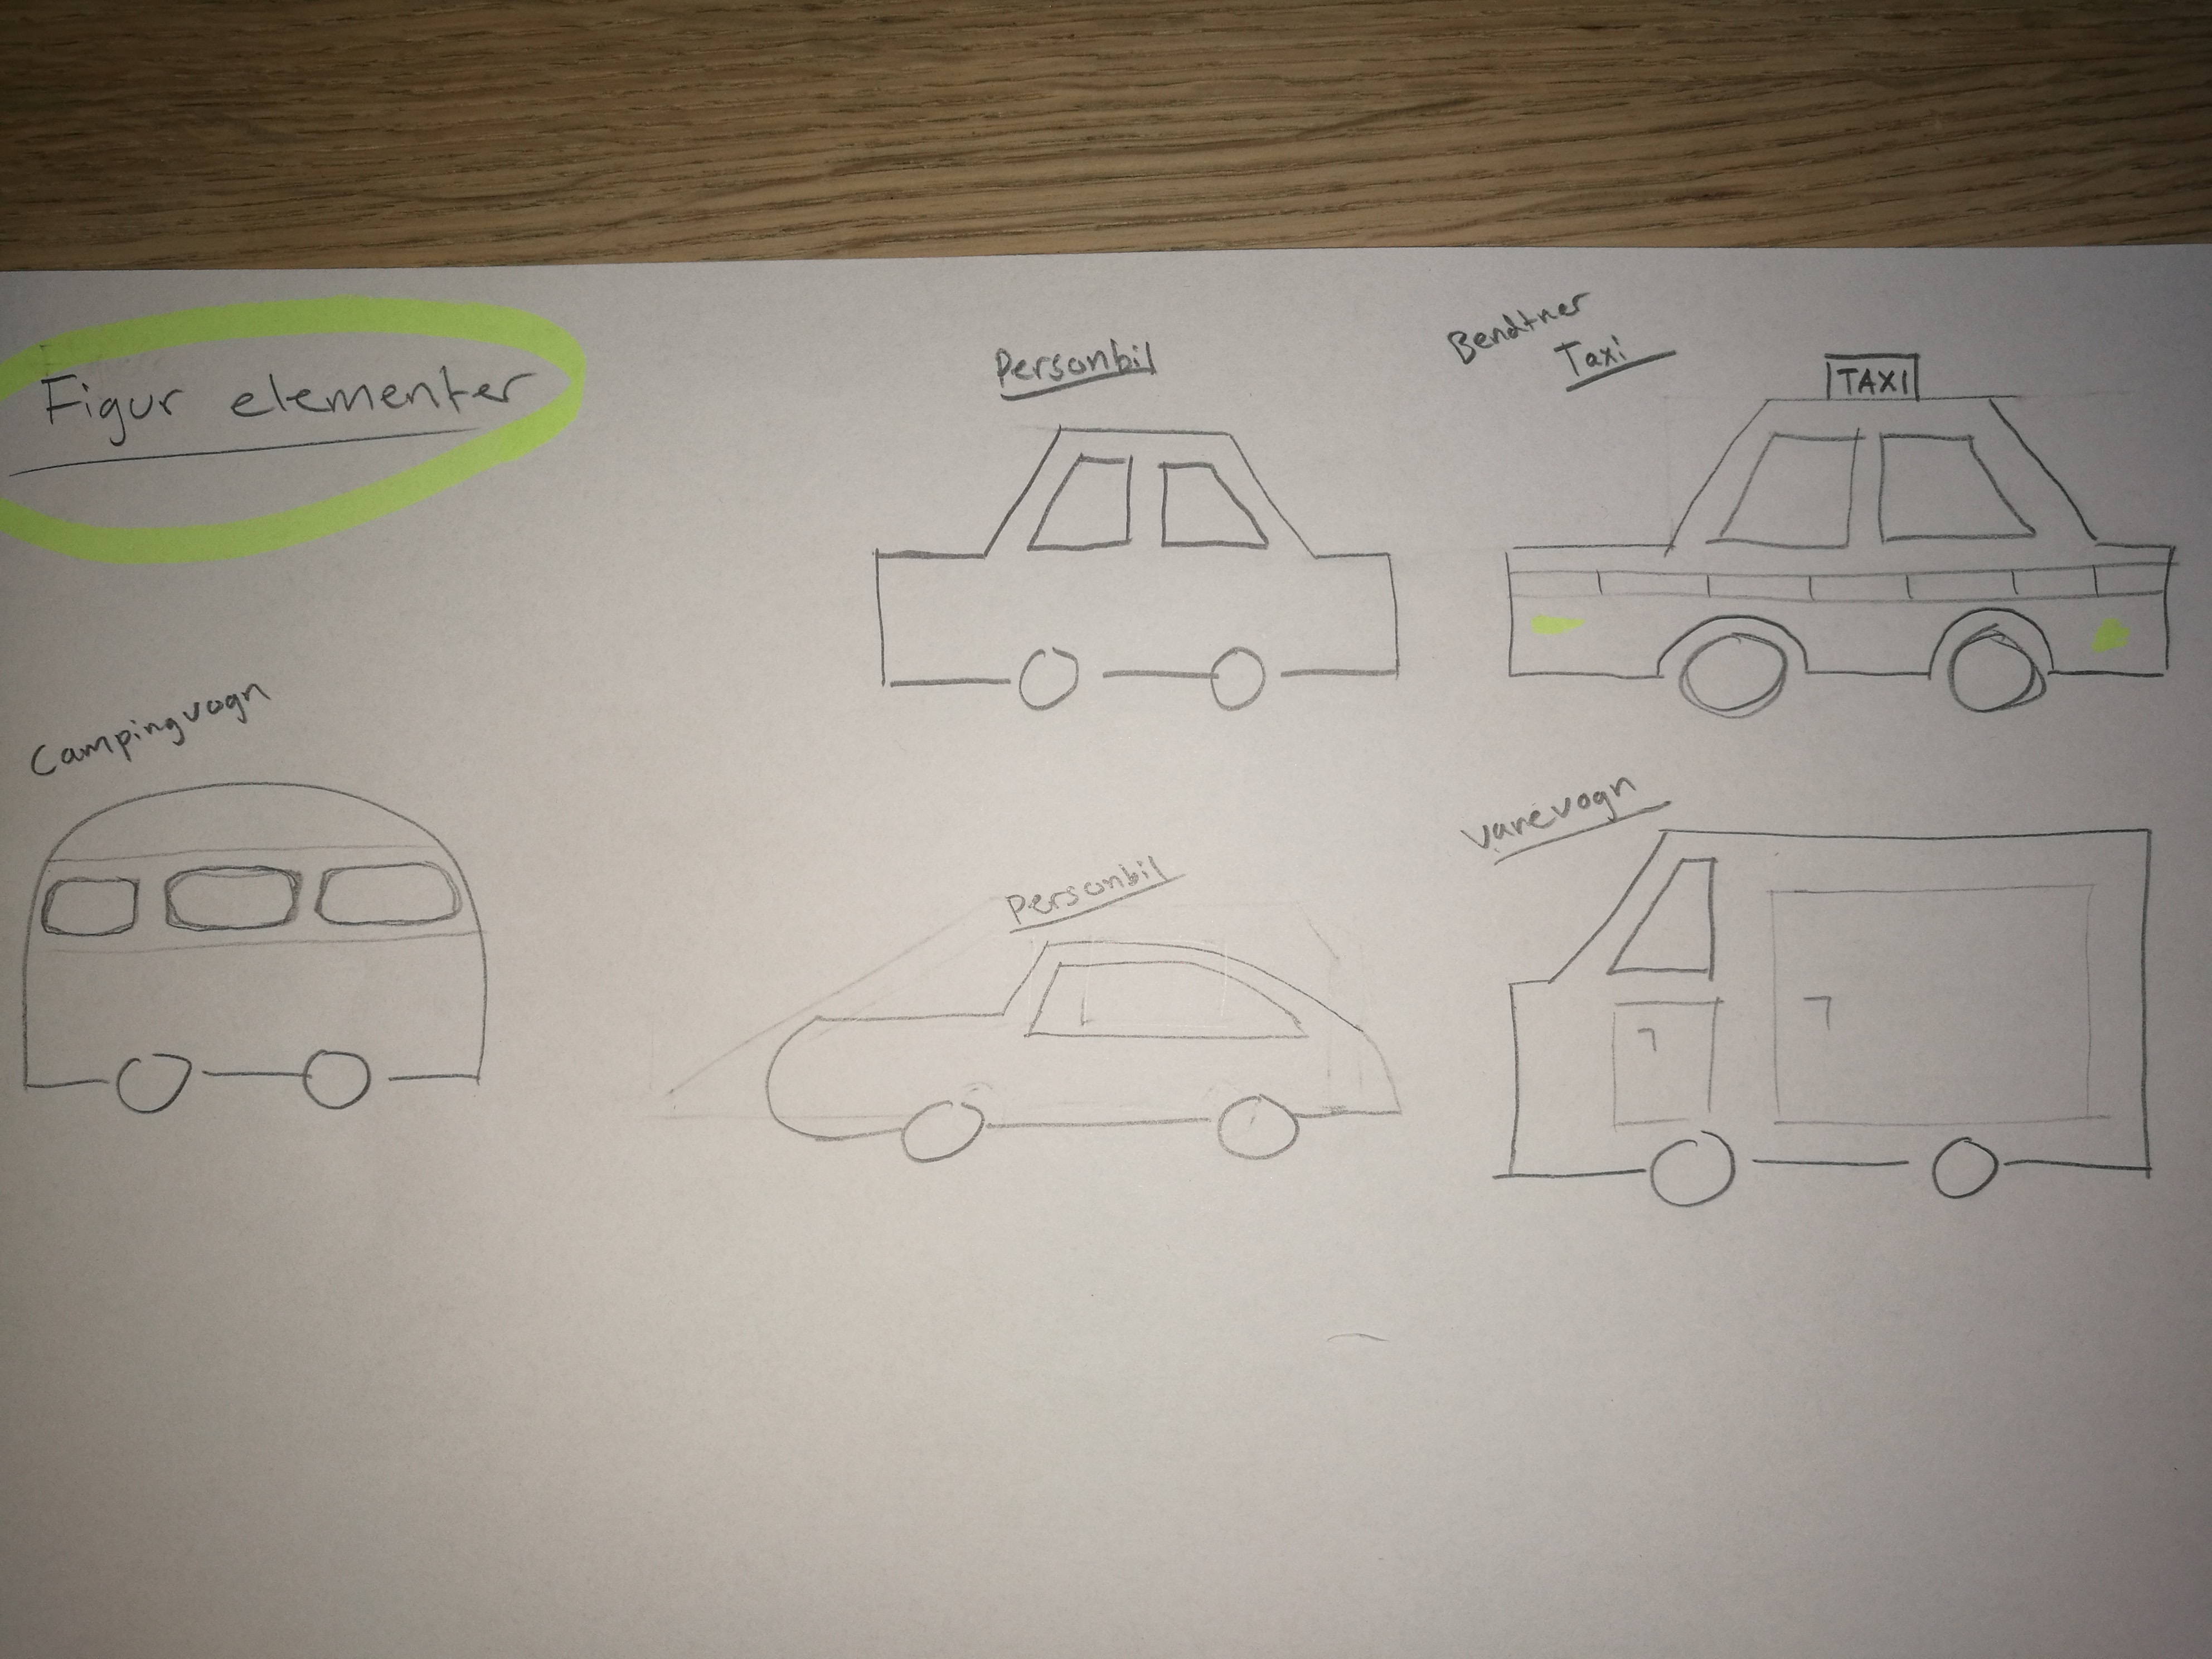 Figur elementer
Personbil
Bendtner
Taxi
TAXI
Campingvogn
Personbil
Varevogn